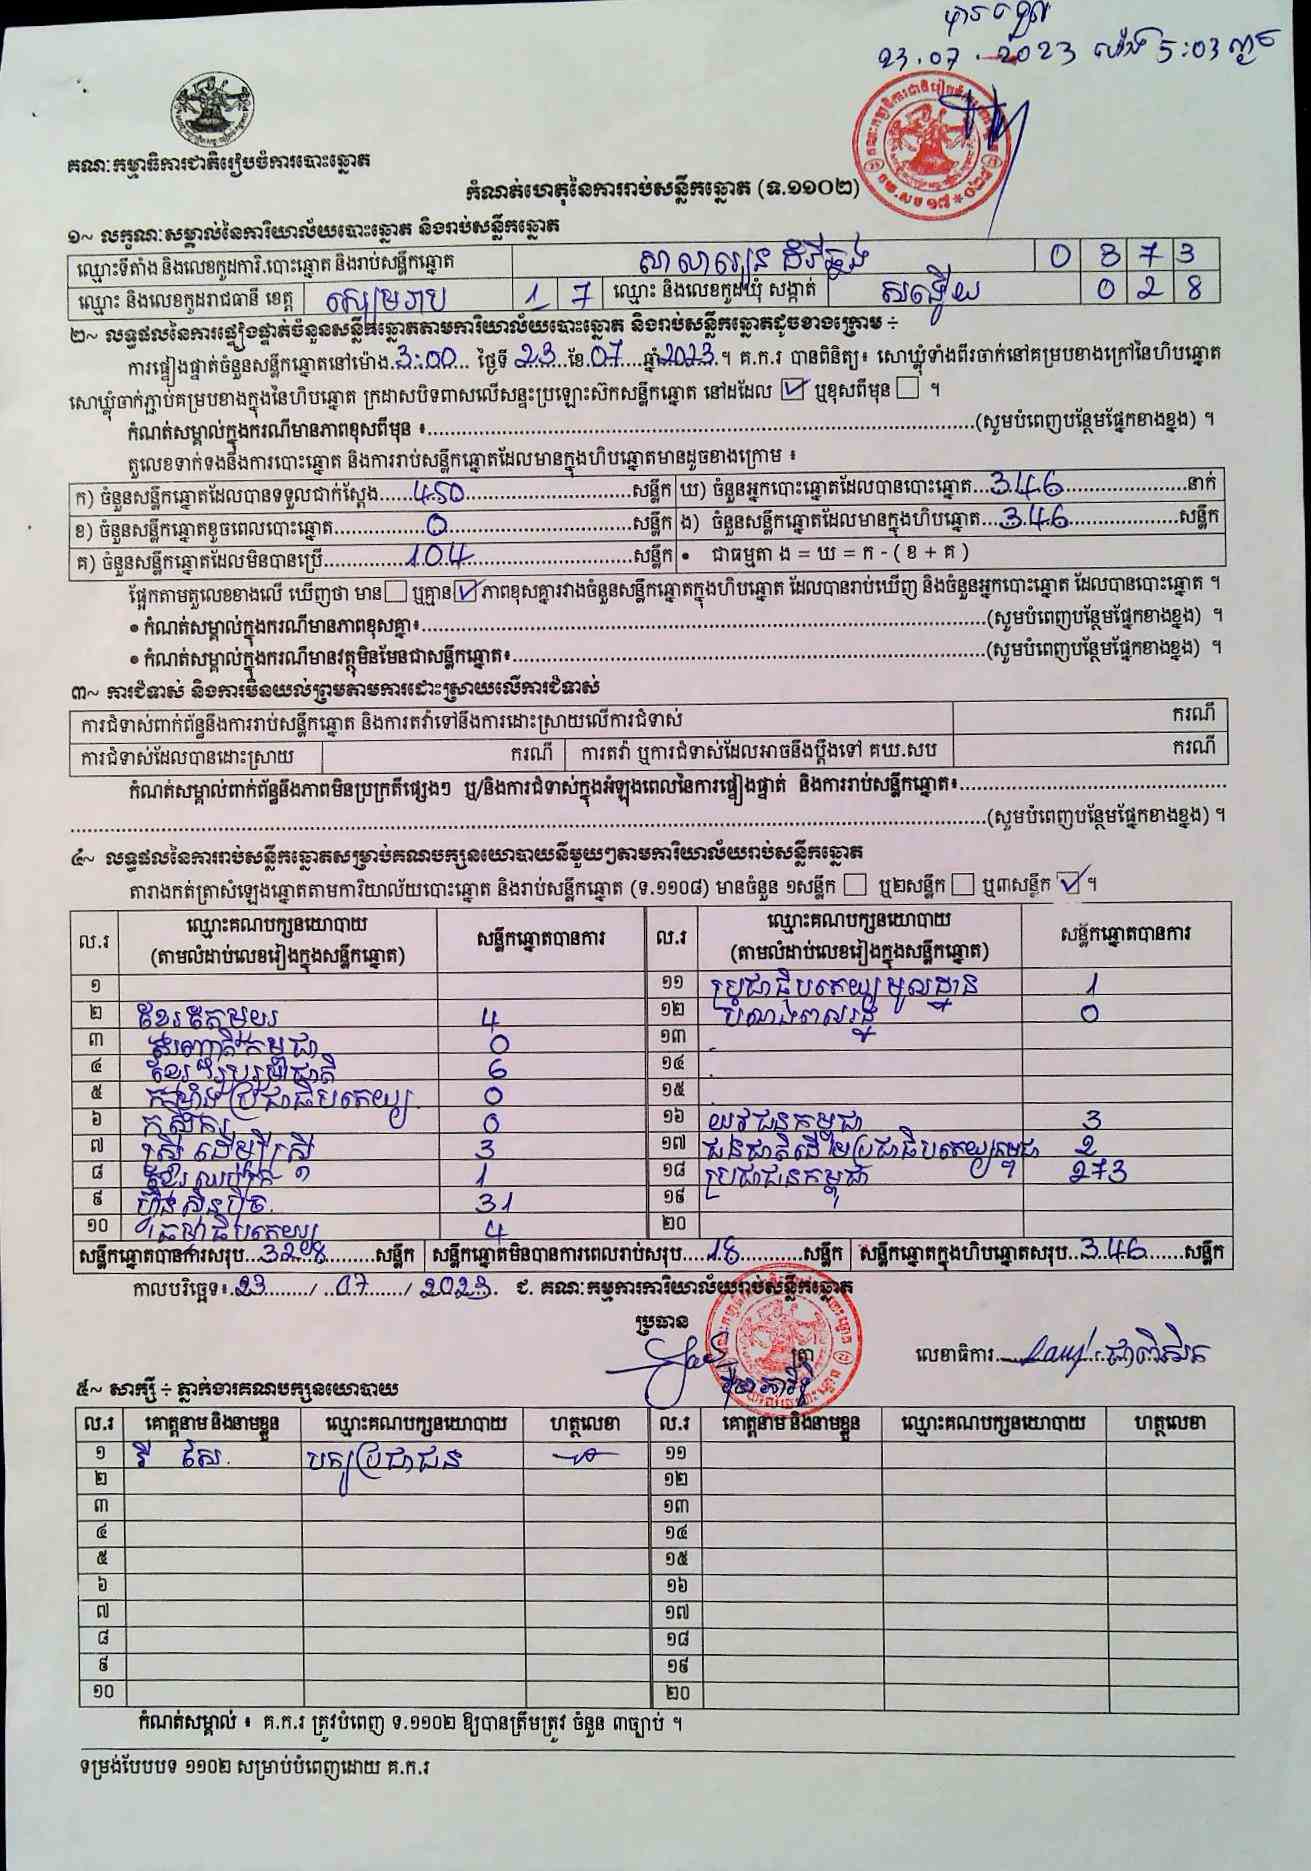 23.07.2023 ម៉ោង 5:03 នាទី
គណៈកម្មាធិការជាតិរៀបចំការបោះឆ្នោត
កំណត់ហេតុនៃការរាប់សន្លឹកឆ្នោត (ទ.១១០២)
១~ លក្ខណៈសម្គាល់នៃការិយាល័យបោះឆ្នោត និងរាប់សន្លឹកឆ្នោត
ឈ្មោះទីតាំង និងលេខកូដការិ.បោះឆ្នោត និងរាប់សន្លឹកឆ្នោត សាលារៀន ដំរីឆ្លង 0 3 7 3
ឈ្មោះ និងលេខកូដរាជធានី ខេត្ត សៀមរាប 1 7 ឈ្មោះ និងលេខកូដឃុំ សង្កាត់ 0 2 8
២~ លទ្ធផលនៃការផ្ទៀងផ្ទាត់ចំនួនសន្លឹកឆ្នោតតាមការិយាល័យបោះឆ្នោត និងរាប់សន្លឹកឆ្នោតដូចខាងក្រោម ÷
ការផ្ទៀងផ្ទាត់ចំនួនសន្លឹកឆ្នោតនៅម៉ោង 3:00 ថ្ងៃទី 23 ខែ 07 ឆ្នាំ 2023 ។ គ.ក.រ បានពិនិត្យ៖ សោឃ្លុំទាំងពីរចាក់នៅគម្របខាងក្រៅនៃហិបឆ្នោត
សោឃ្លុំចាក់ភ្ជាប់គម្របខាងក្នុងនៃហិបឆ្នោត ក្រដាសបិទពាសលើសន្ទះប្រឡោះស៊កសន្លឹកឆ្នោត នៅដដែល ✓ ឬខុសពីមុន ។
កំណត់សម្គាល់ក្នុងករណីមានភាពខុសពីមុន ៖ (សូមបំពេញបន្ថែមផ្នែកខាងខ្នង) ។
តួលេខទាក់ទងនឹងការបោះឆ្នោត និងការរាប់សន្លឹកឆ្នោតដែលមានក្នុងហិបឆ្នោតមានដូចខាងក្រោម ៖
ក) ចំនួនសន្លឹកឆ្នោតដែលបានទទួលជាក់ស្តែង 450 សន្លឹក ឃ) ចំនួនអ្នកបោះឆ្នោតដែលបានបោះឆ្នោត 346 នាក់
ខ) ចំនួនសន្លឹកឆ្នោតខូចពេលបោះឆ្នោត 0 សន្លឹក ង) ចំនួនសន្លឹកឆ្នោតដែលមានក្នុងហិបឆ្នោត 346 សន្លឹក
គ) ចំនួនសន្លឹកឆ្នោតដែលមិនបានប្រើ 104 សន្លឹក • ជាធម្មតា ង = ឃ = ក - ( ខ + គ )
ផ្អែកតាមតួលេខខាងលើ ឃើញថា មាន ឬគ្មាន ✓ ភាពខុសគ្នារវាងចំនួនសន្លឹកឆ្នោតក្នុងហិបឆ្នោត ដែលបានរាប់ឃើញ និងចំនួនអ្នកបោះឆ្នោត ដែលបានបោះឆ្នោត ។
• កំណត់សម្គាល់ក្នុងករណីមានភាពខុសគ្នា៖ (សូមបំពេញបន្ថែមផ្នែកខាងខ្នង) ។
• កំណត់សម្គាល់ក្នុងករណីមានវត្ថុមិនមែនជាសន្លឹកឆ្នោត៖ (សូមបំពេញបន្ថែមផ្នែកខាងខ្នង) ។
៣~ ការជំទាស់ និងការមិនយល់ព្រមតាមការដោះស្រាយលើការជំទាស់
ការជំទាស់ពាក់ព័ន្ធនឹងការរាប់សន្លឹកឆ្នោត និងការតវ៉ាទៅនឹងការដោះស្រាយលើការជំទាស់ ករណី
ការជំទាស់ដែលបានដោះស្រាយ ករណី ការតវ៉ា ឬការជំទាស់ដែលអាចនឹងប្តឹងទៅ គឃ.សប ករណី
កំណត់សម្គាល់ពាក់ព័ន្ធនឹងភាពមិនប្រក្រតីផ្សេងៗ ឬ/និងការជំទាស់ក្នុងអំឡុងពេលនៃការផ្ទៀងផ្ទាត់ និងការរាប់សន្លឹកឆ្នោត៖
(សូមបំពេញបន្ថែមផ្នែកខាងខ្នង) ។
៤~ លទ្ធផលនៃការរាប់សន្លឹកឆ្នោតសម្រាប់គណបក្សនយោបាយនីមួយៗតាមការិយាល័យរាប់សន្លឹកឆ្នោត
តារាងកត់ត្រាសំឡេងឆ្នោតតាមការិយាល័យបោះឆ្នោត និងរាប់សន្លឹកឆ្នោត (ទ.១១០៨) មានចំនួន ១សន្លឹក ឬ២សន្លឹក ឬ៣សន្លឹក ✓ ។
ល.រ ឈ្មោះគណបក្សនយោបាយ (តាមលំដាប់លេខរៀងក្នុងសន្លឹកឆ្នោត) សន្លឹកឆ្នោតបានការ ល.រ ឈ្មោះគណបក្សនយោបាយ (តាមលំដាប់លេខរៀងក្នុងសន្លឹកឆ្នោត) សន្លឹកឆ្នោតបានការ
១ ១១ ប្រជាធិបតេយ្យមូលដ្ឋាន 1
២ ខ្មែរតែមួយ 4 ១២ 0
៣ 0 ១៣
៤ 6 ១៤
៥ ប្រជាធិបតេយ្យ 0 ១៥
៦ កសិករ 0 ១៦ យុវជនកម្ពុជា 3
៧ ស្រីដើម្បីស្រី 3 ១៧ ជនជាតិដើមប្រជាធិបតេយ្យកម្ពុជា 2
៨ 1 ១៨ ប្រជាជនកម្ពុជា 273
៩ ហ៊្វុនស៊ិនប៉ិច 31 ១៩
១០ ធម្មាធិបតេយ្យ 4 ២០
សន្លឹកឆ្នោតបានការសរុប 328 សន្លឹក សន្លឹកឆ្នោតមិនបានការពេលរាប់សរុប 18 សន្លឹក សន្លឹកឆ្នោតក្នុងហិបឆ្នោតសរុប 346 សន្លឹក
កាលបរិច្ឆេទ៖ 23 / 07 / 2023 . ជ. គណៈកម្មការការិយាល័យរាប់សន្លឹកឆ្នោត
ប្រធាន
ត្រា
លេខាធិការ
៥~ សាក្សី ÷ ភ្នាក់ងារគណបក្សនយោបាយ
ល.រ គោត្តនាម និងនាមខ្លួន ឈ្មោះគណបក្សនយោបាយ ហត្ថលេខា ល.រ គោត្តនាម និងនាមខ្លួន ឈ្មោះគណបក្សនយោបាយ ហត្ថលេខា
១ បក្សប្រជាជន ១១
២ ១២
៣ ១៣
៤ ១៤
៥ ១៥
៦ ១៦
៧ ១៧
៨ ១៨
៩ ១៩
១០ ២០
កំណត់សម្គាល់ ៖ គ.ក.រ ត្រូវបំពេញ ទ.១១០២ ឱ្យបានត្រឹមត្រូវ ចំនួន ៣ច្បាប់ ។
ទម្រង់បែបបទ ១១០២ សម្រាប់បំពេញដោយ គ.ក.រ